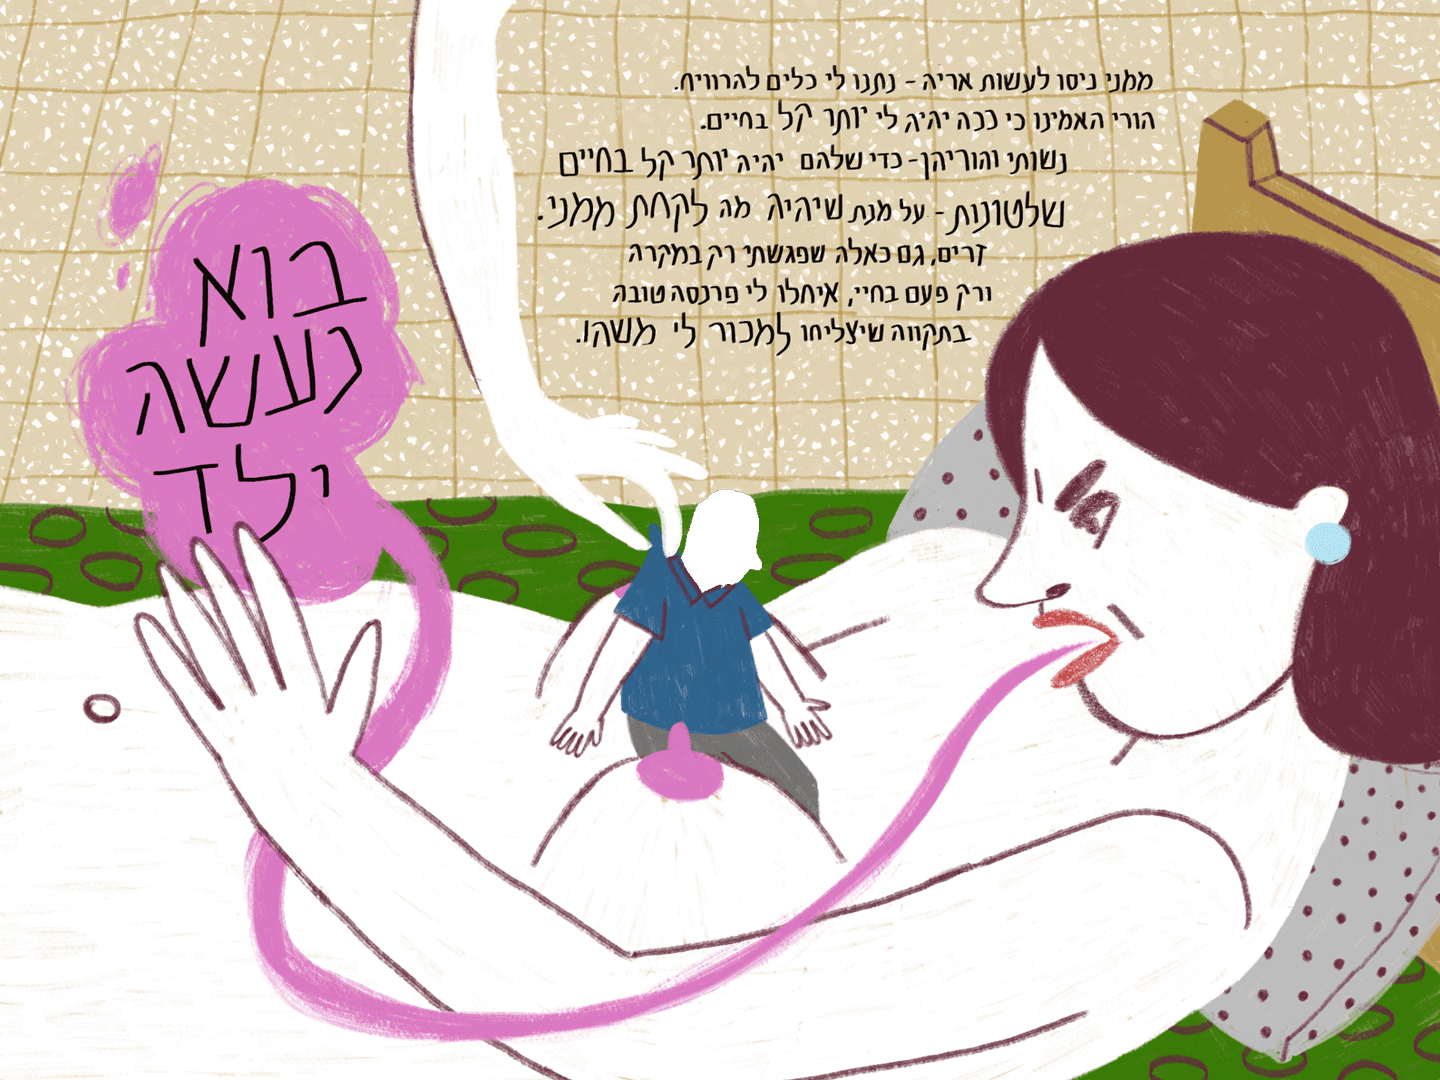 ממני ניסו לעשות אריה - נתנו לי כלים להרוויח.
הורי האמינו כי ככה יהיה לי יותר קל בחיים.
נשותי והוריהן - כדי שלהם יהיה יותר קל בחיים
שלטונות - על מנת שיהיה מה לקחת ממני.
זרים, גם כאלה שפגשתי רק במקרה
ורק פעם בחיי, איחלו לי פרנסה טובה
בתקווה שיצליחו למכור לי משהו.
בוא
נעשה
ילד